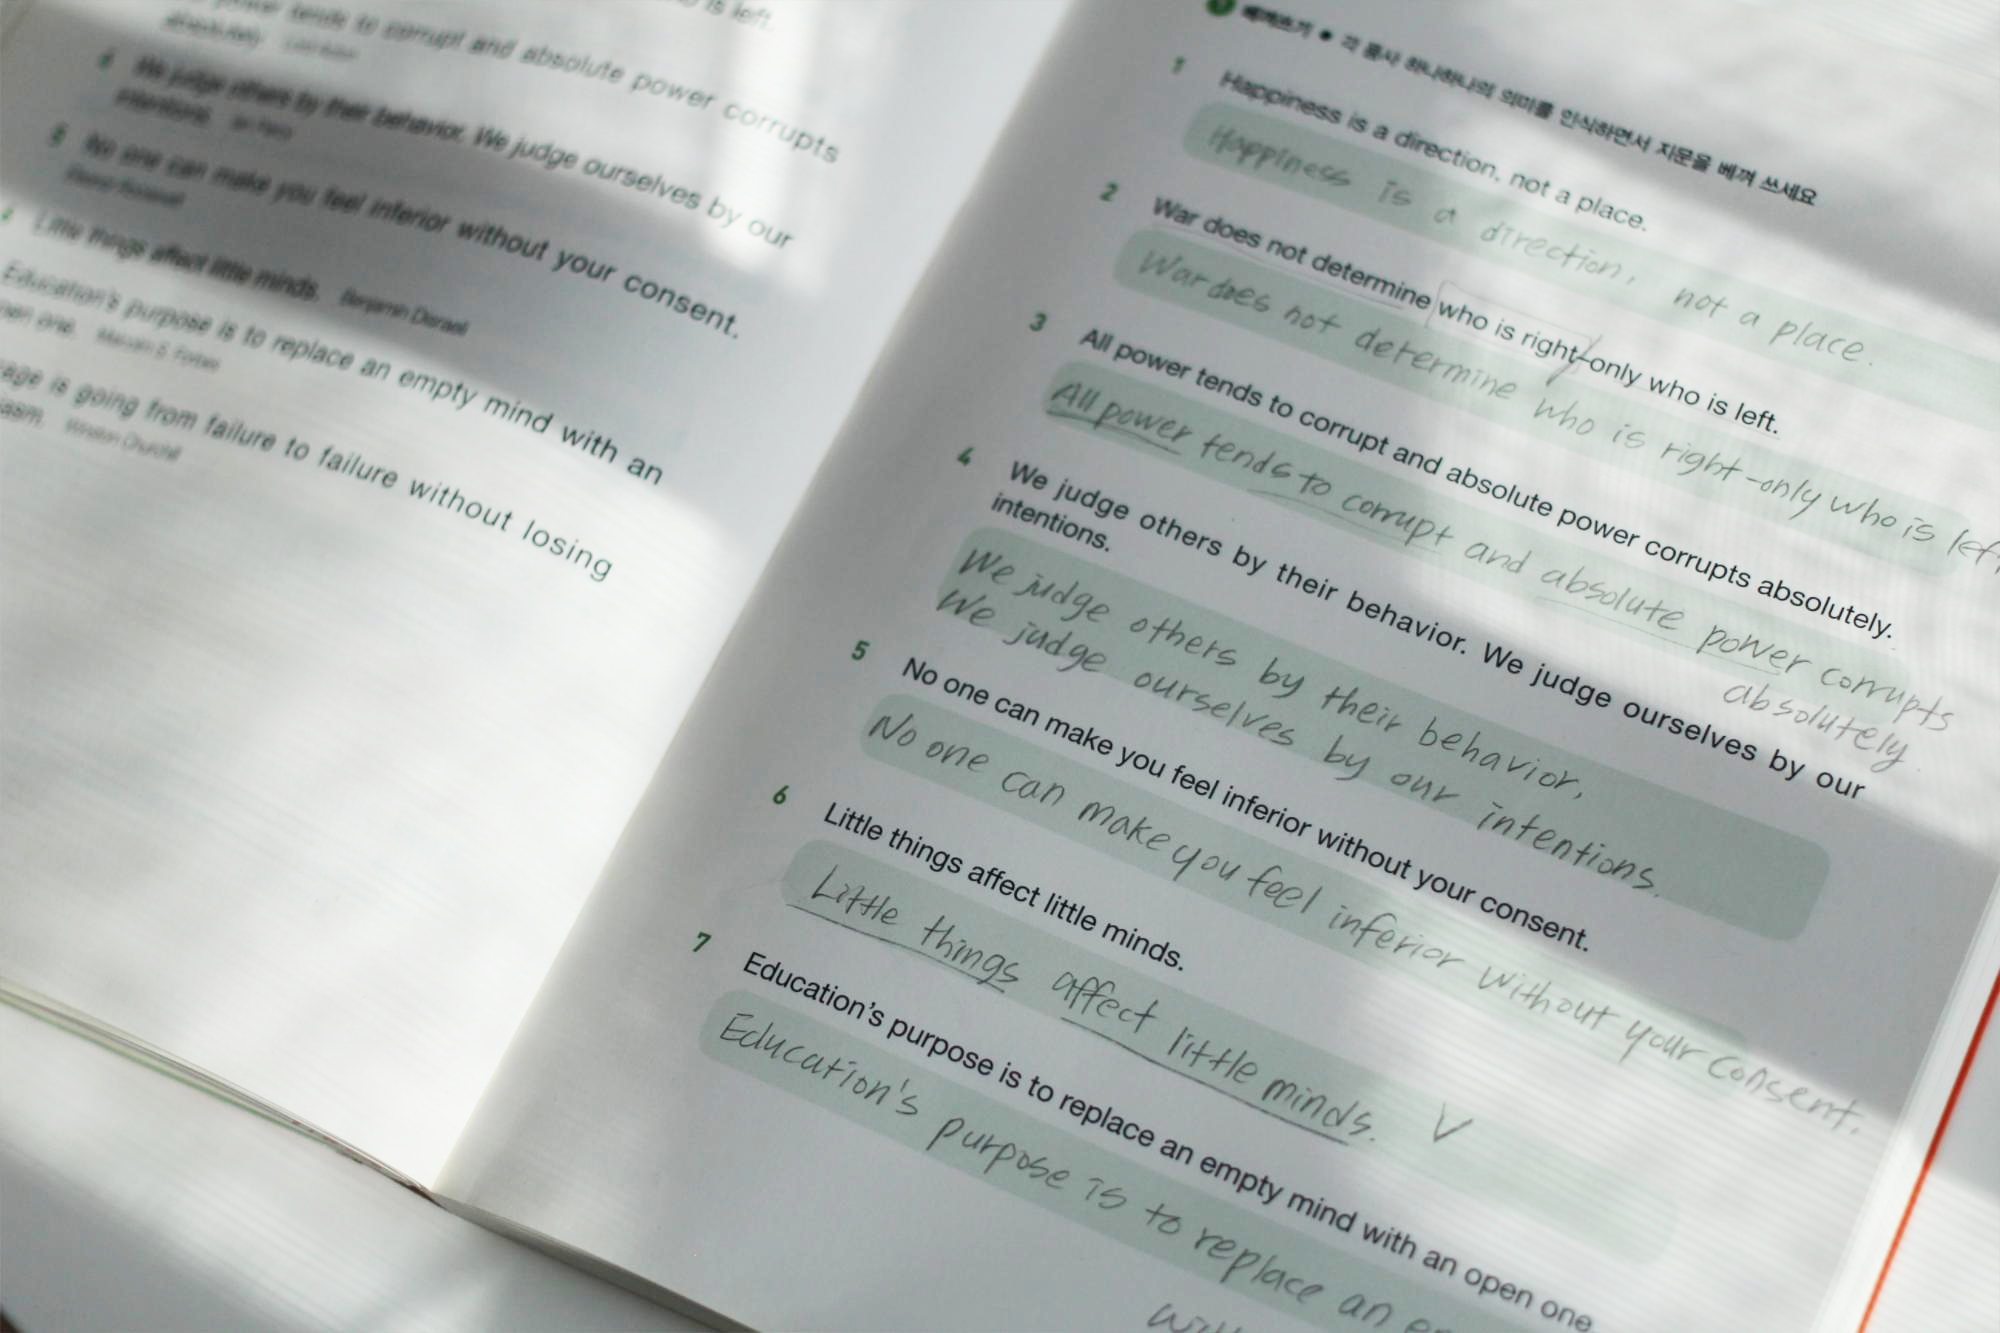 is left.
power tends to corrupt and absolute power corrupts
absolutely
4 We judge others by their behavior. We judge ourselves by our
intentions.
5 No one can make you feel inferior without your consent.
Little things affect little minds. Benjamin Disraeli
Education's purpose is to replace an empty mind with an
open one. Malcolm S. Forbes
is going from failure to failure without losing
Winston Churchill
베껴쓰기 ● 각 품사 하나하나의 의미를 인식하면서 지문을 베껴 쓰세요
1 Happiness is a direction, not a place.
Happiness is a direction, not a place.
2 War does not determine who is right-only who is left.
War does not determine who is right-only who is left.
3 All power tends to corrupt and absolute power corrupts absolutely.
All power tends to corrupt and absolute power corrupts
absolutely.
4 We judge others by their behavior. We judge ourselves by our
intentions.
We judge others by their behavior,
We judge ourselves by our intentions.
5 No one can make you feel inferior without your consent.
No one can make you feel inferior without your consent.
6 Little things affect little minds.
Little things affect little minds. V
7 Education's purpose is to replace an empty mind with an open one.
Education's purpose is to replace an